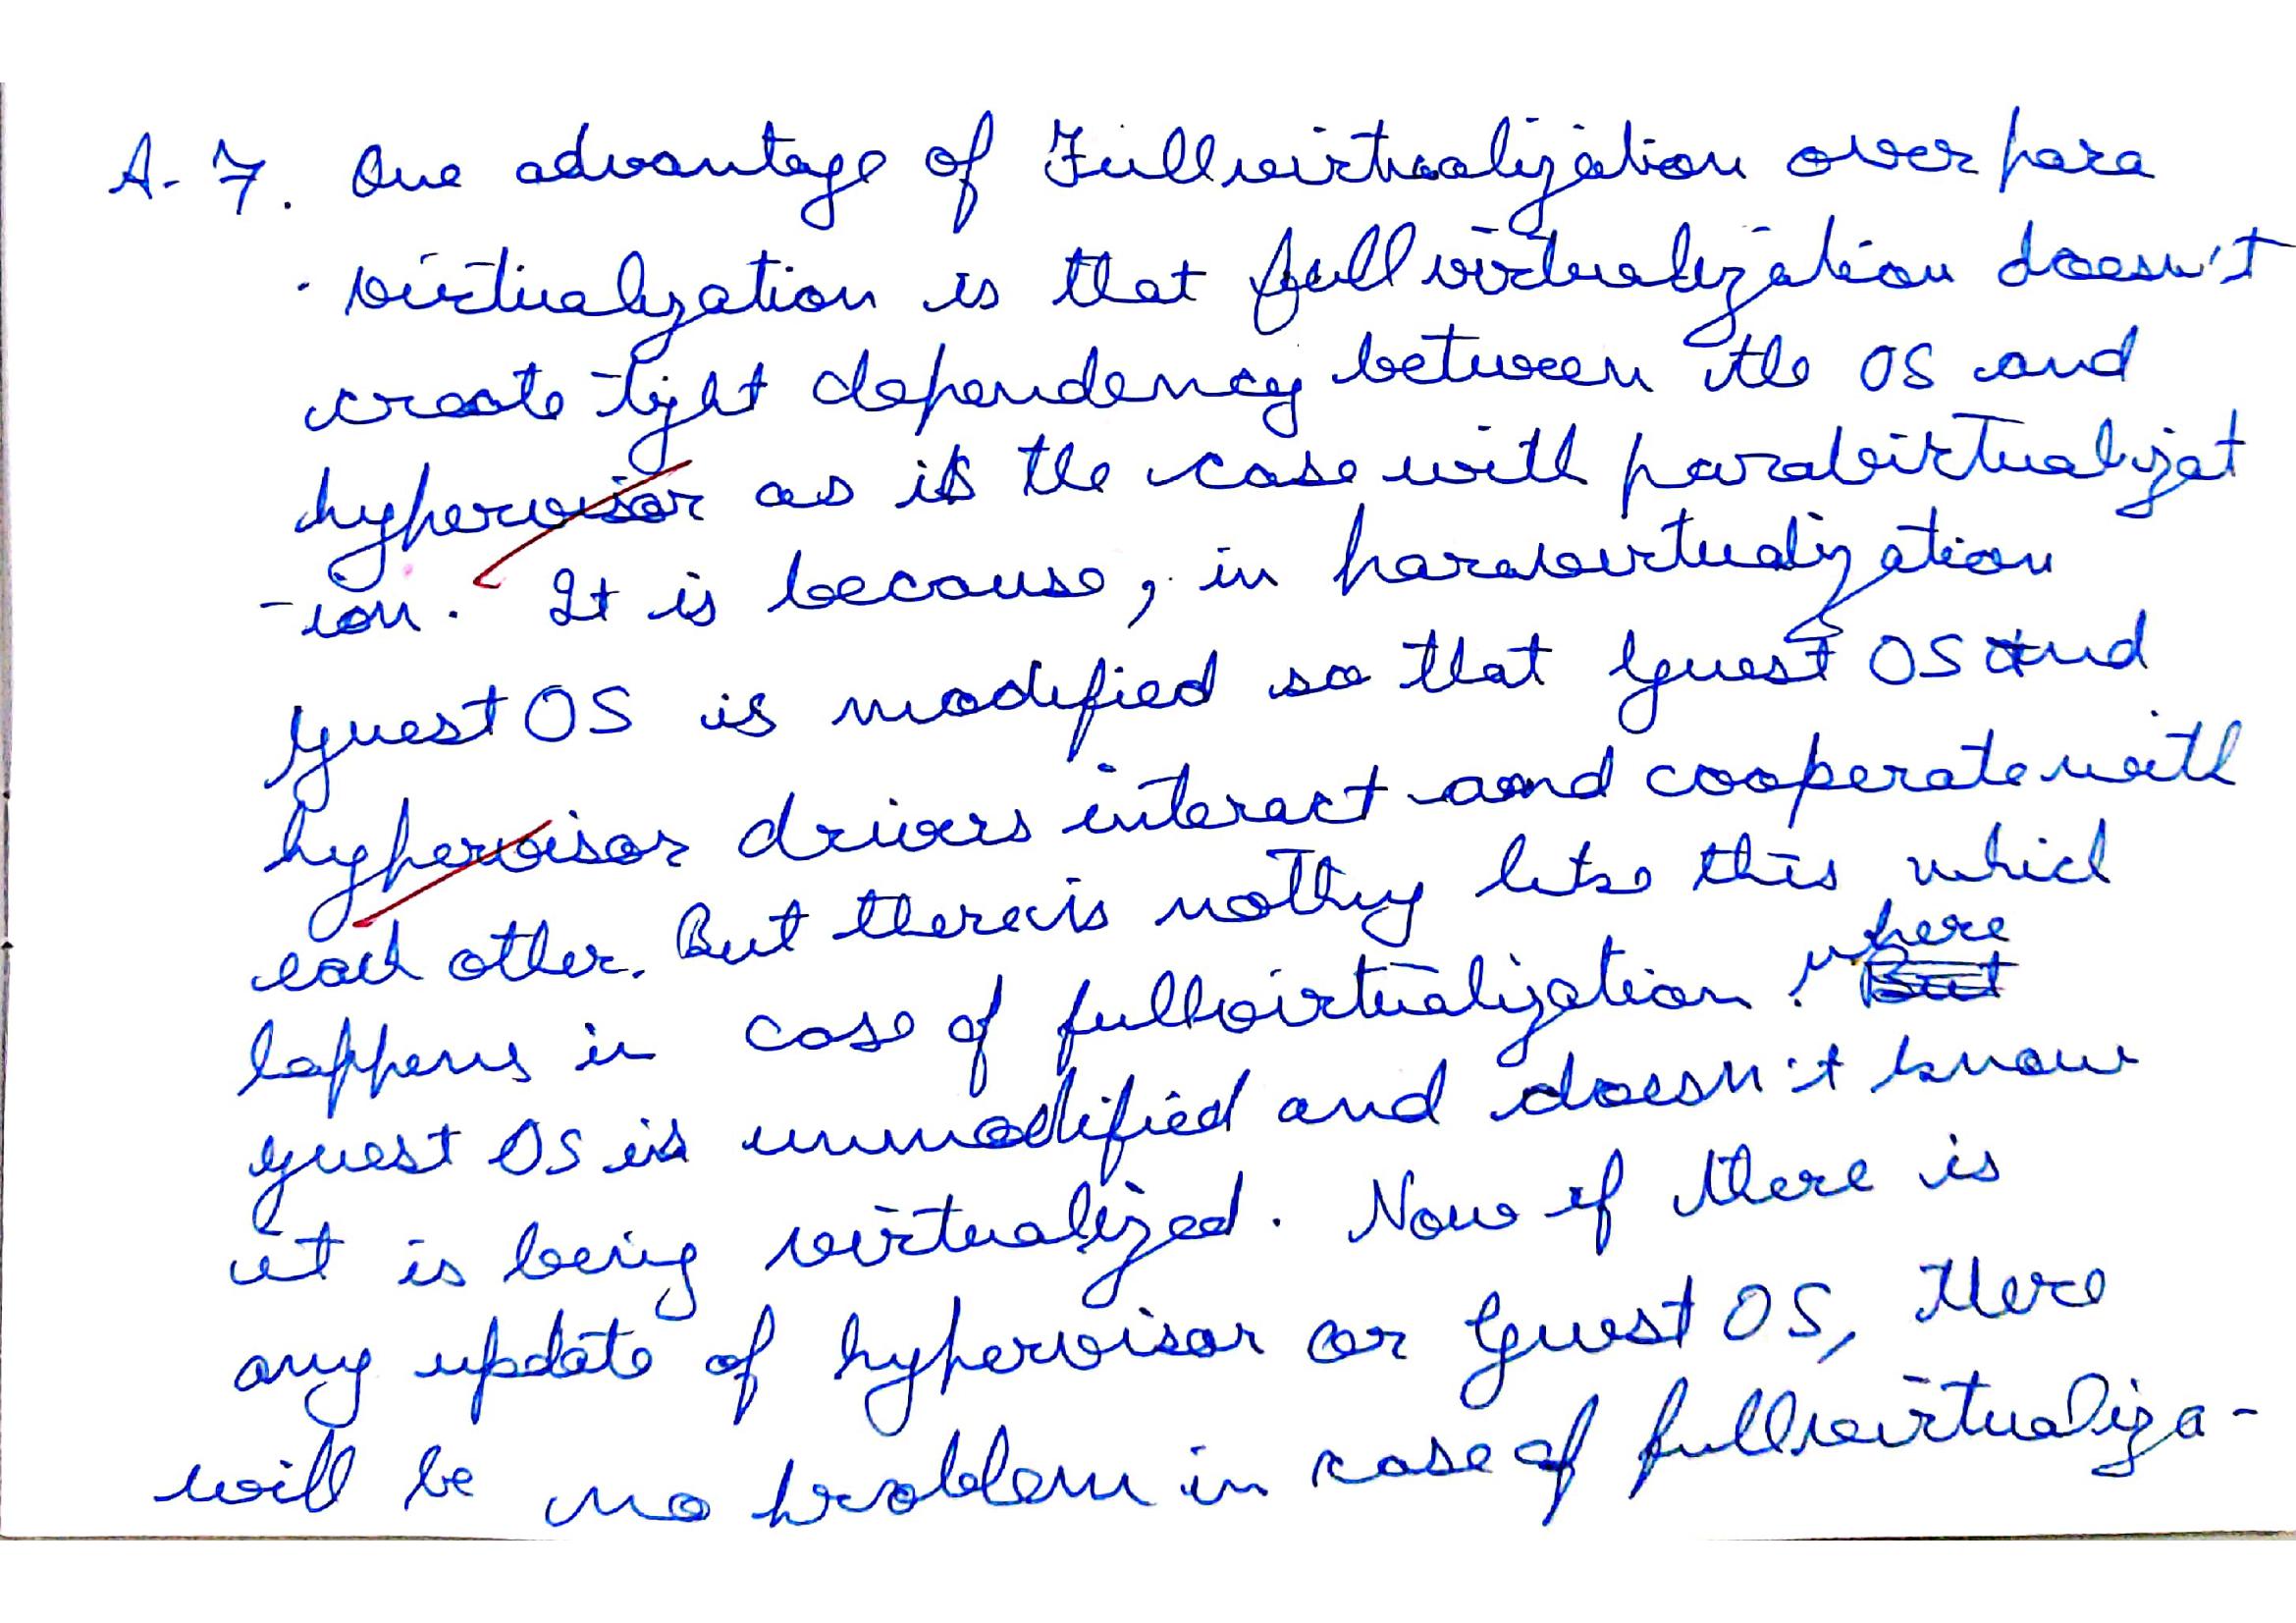 A-7. One advantage of Fullvirtualization over para
virtualization is that full virtualization doesn't
create tight dependency between the OS and
hypervisor as is the case with paravirtualizat
-ion. It is because, in paravirtualization
guest OS is modified so that guest OS and
hypervisor drivers interact and cooperate with
each other. But there is nothing like this which
happens in case of fullvirtualization. where
guest OS is unmodified and doesn't know
it is being virtualized. Now if there is
any update of hypervisor or guest OS, there
will be no problem in case of fullvirtualiza-